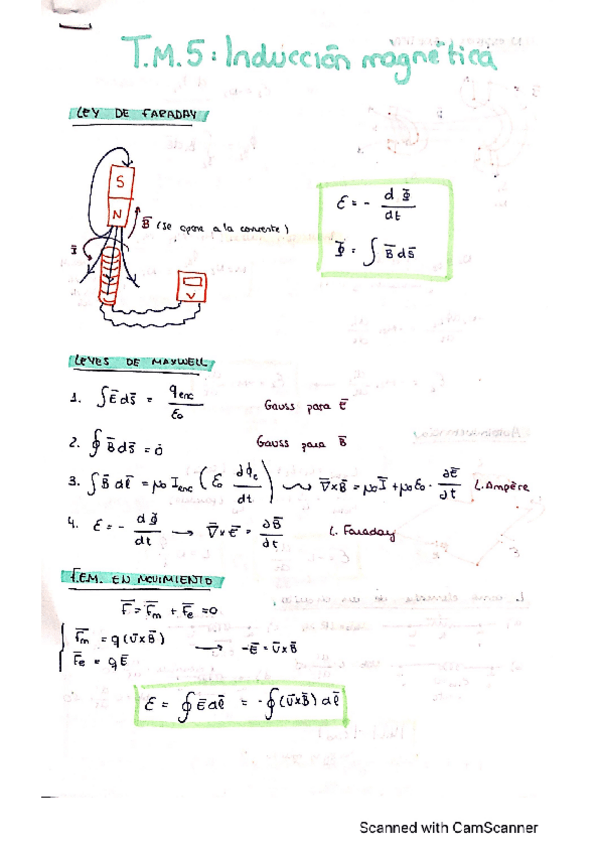 T.M.5: Inducción magnética
LEY DE FARADAY
S
N
B̄ (se opone a la corriente)
Ī
V
ℰ = - dΦ̄/dt
Φ̄ = ∫ B̄ ds̄
LEYES DE MAXWELL
1. ∫Ēds̄ = qenc/ε0 Gauss para Ē
2. ∮B̄ds̄ = 0 Gauss para B̄
3. ∫B̄dl̄ = μ0 Īenc (ε0 dϕe/dt) ⇝ ∇̄×B̄ = μ0Ī + μ0ε0 · ∂Ē/∂t L. Ampère
4. ℰ = - dΦ̄/dt → ∇̄×Ē = ∂B̄/∂t L. Faraday
F.E.M. EN MOVIMIENTO
F̄ = F̄m + F̄e = 0
F̄m = q(v̄×B̄)
F̄e = qĒ → -Ē = v̄×B̄
ℰ = ∮Ēdl̄ = -∮(v̄×B̄)dl̄
Scanned with CamScanner